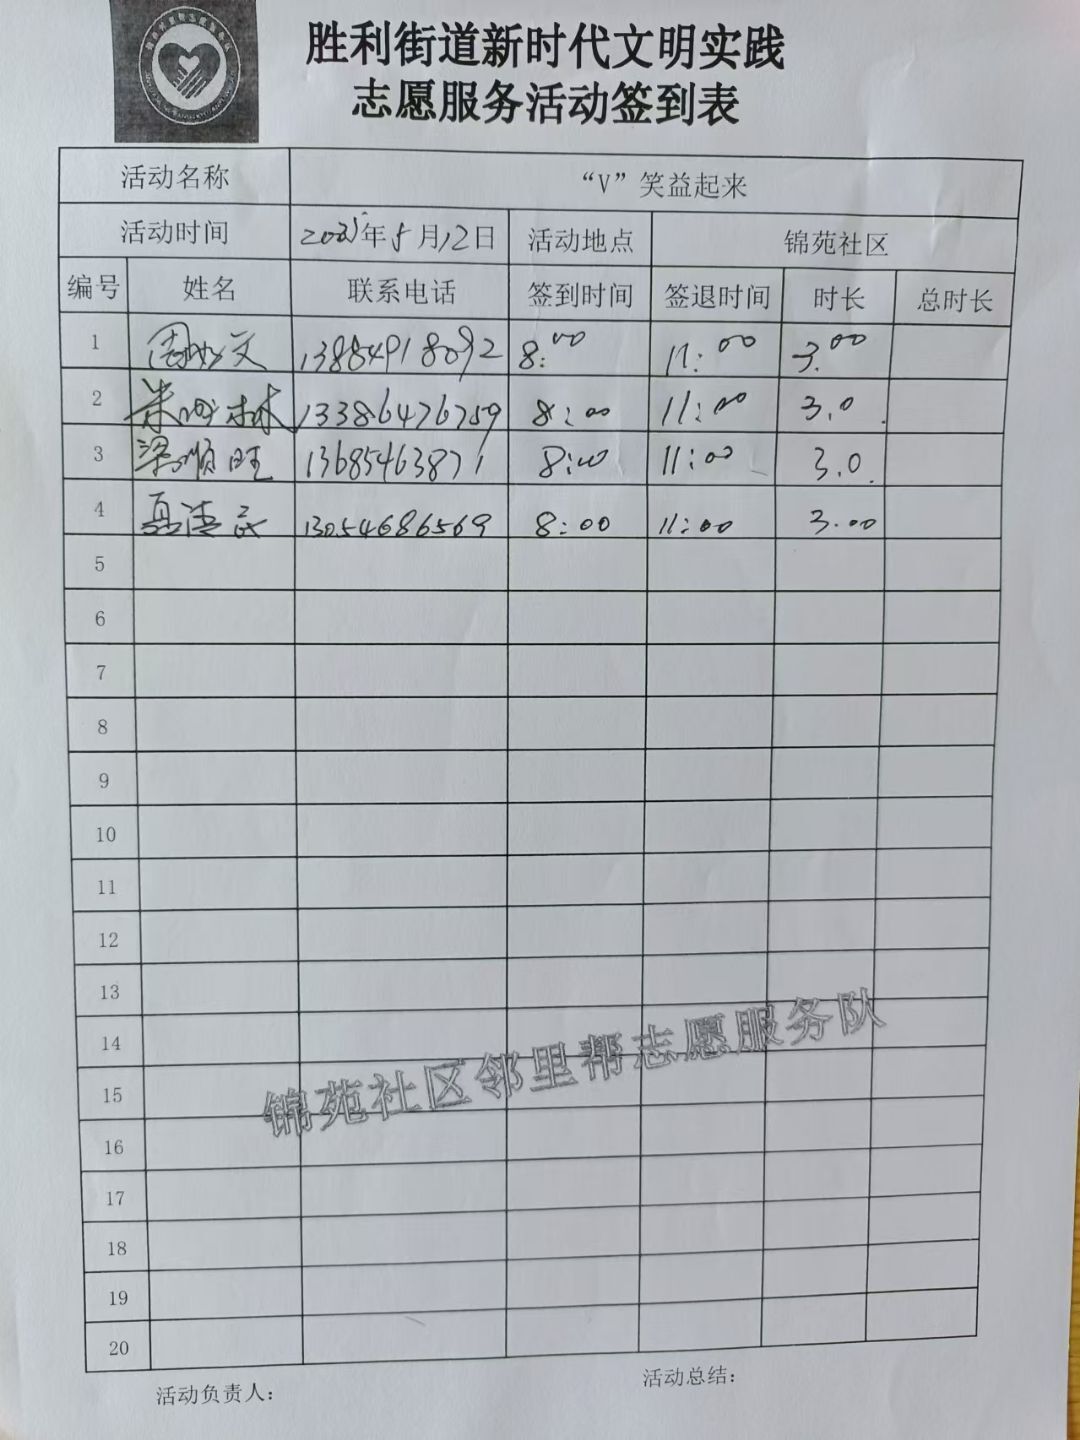 胜利街道新时代文明实践
志愿服务活动签到表
活动名称 “V”笑益起来
活动时间 年5月12日 活动地点 锦苑社区
编号 姓名 联系电话 签到时间 签退时间 时长 总时长
1 文 13884918092 8:00 11:00 3.00
2 林 13386476759 8:00 11:00 3.0
3 梁顺旺 13685463871 8:00 11:00 3.0
4 13054686569 8:00 11:00 3.00
5
6
7
8
9
10
11
12
13
14
15
16
17
18
19
20
锦苑社区邻里帮志愿服务队
活动负责人: 活动总结: